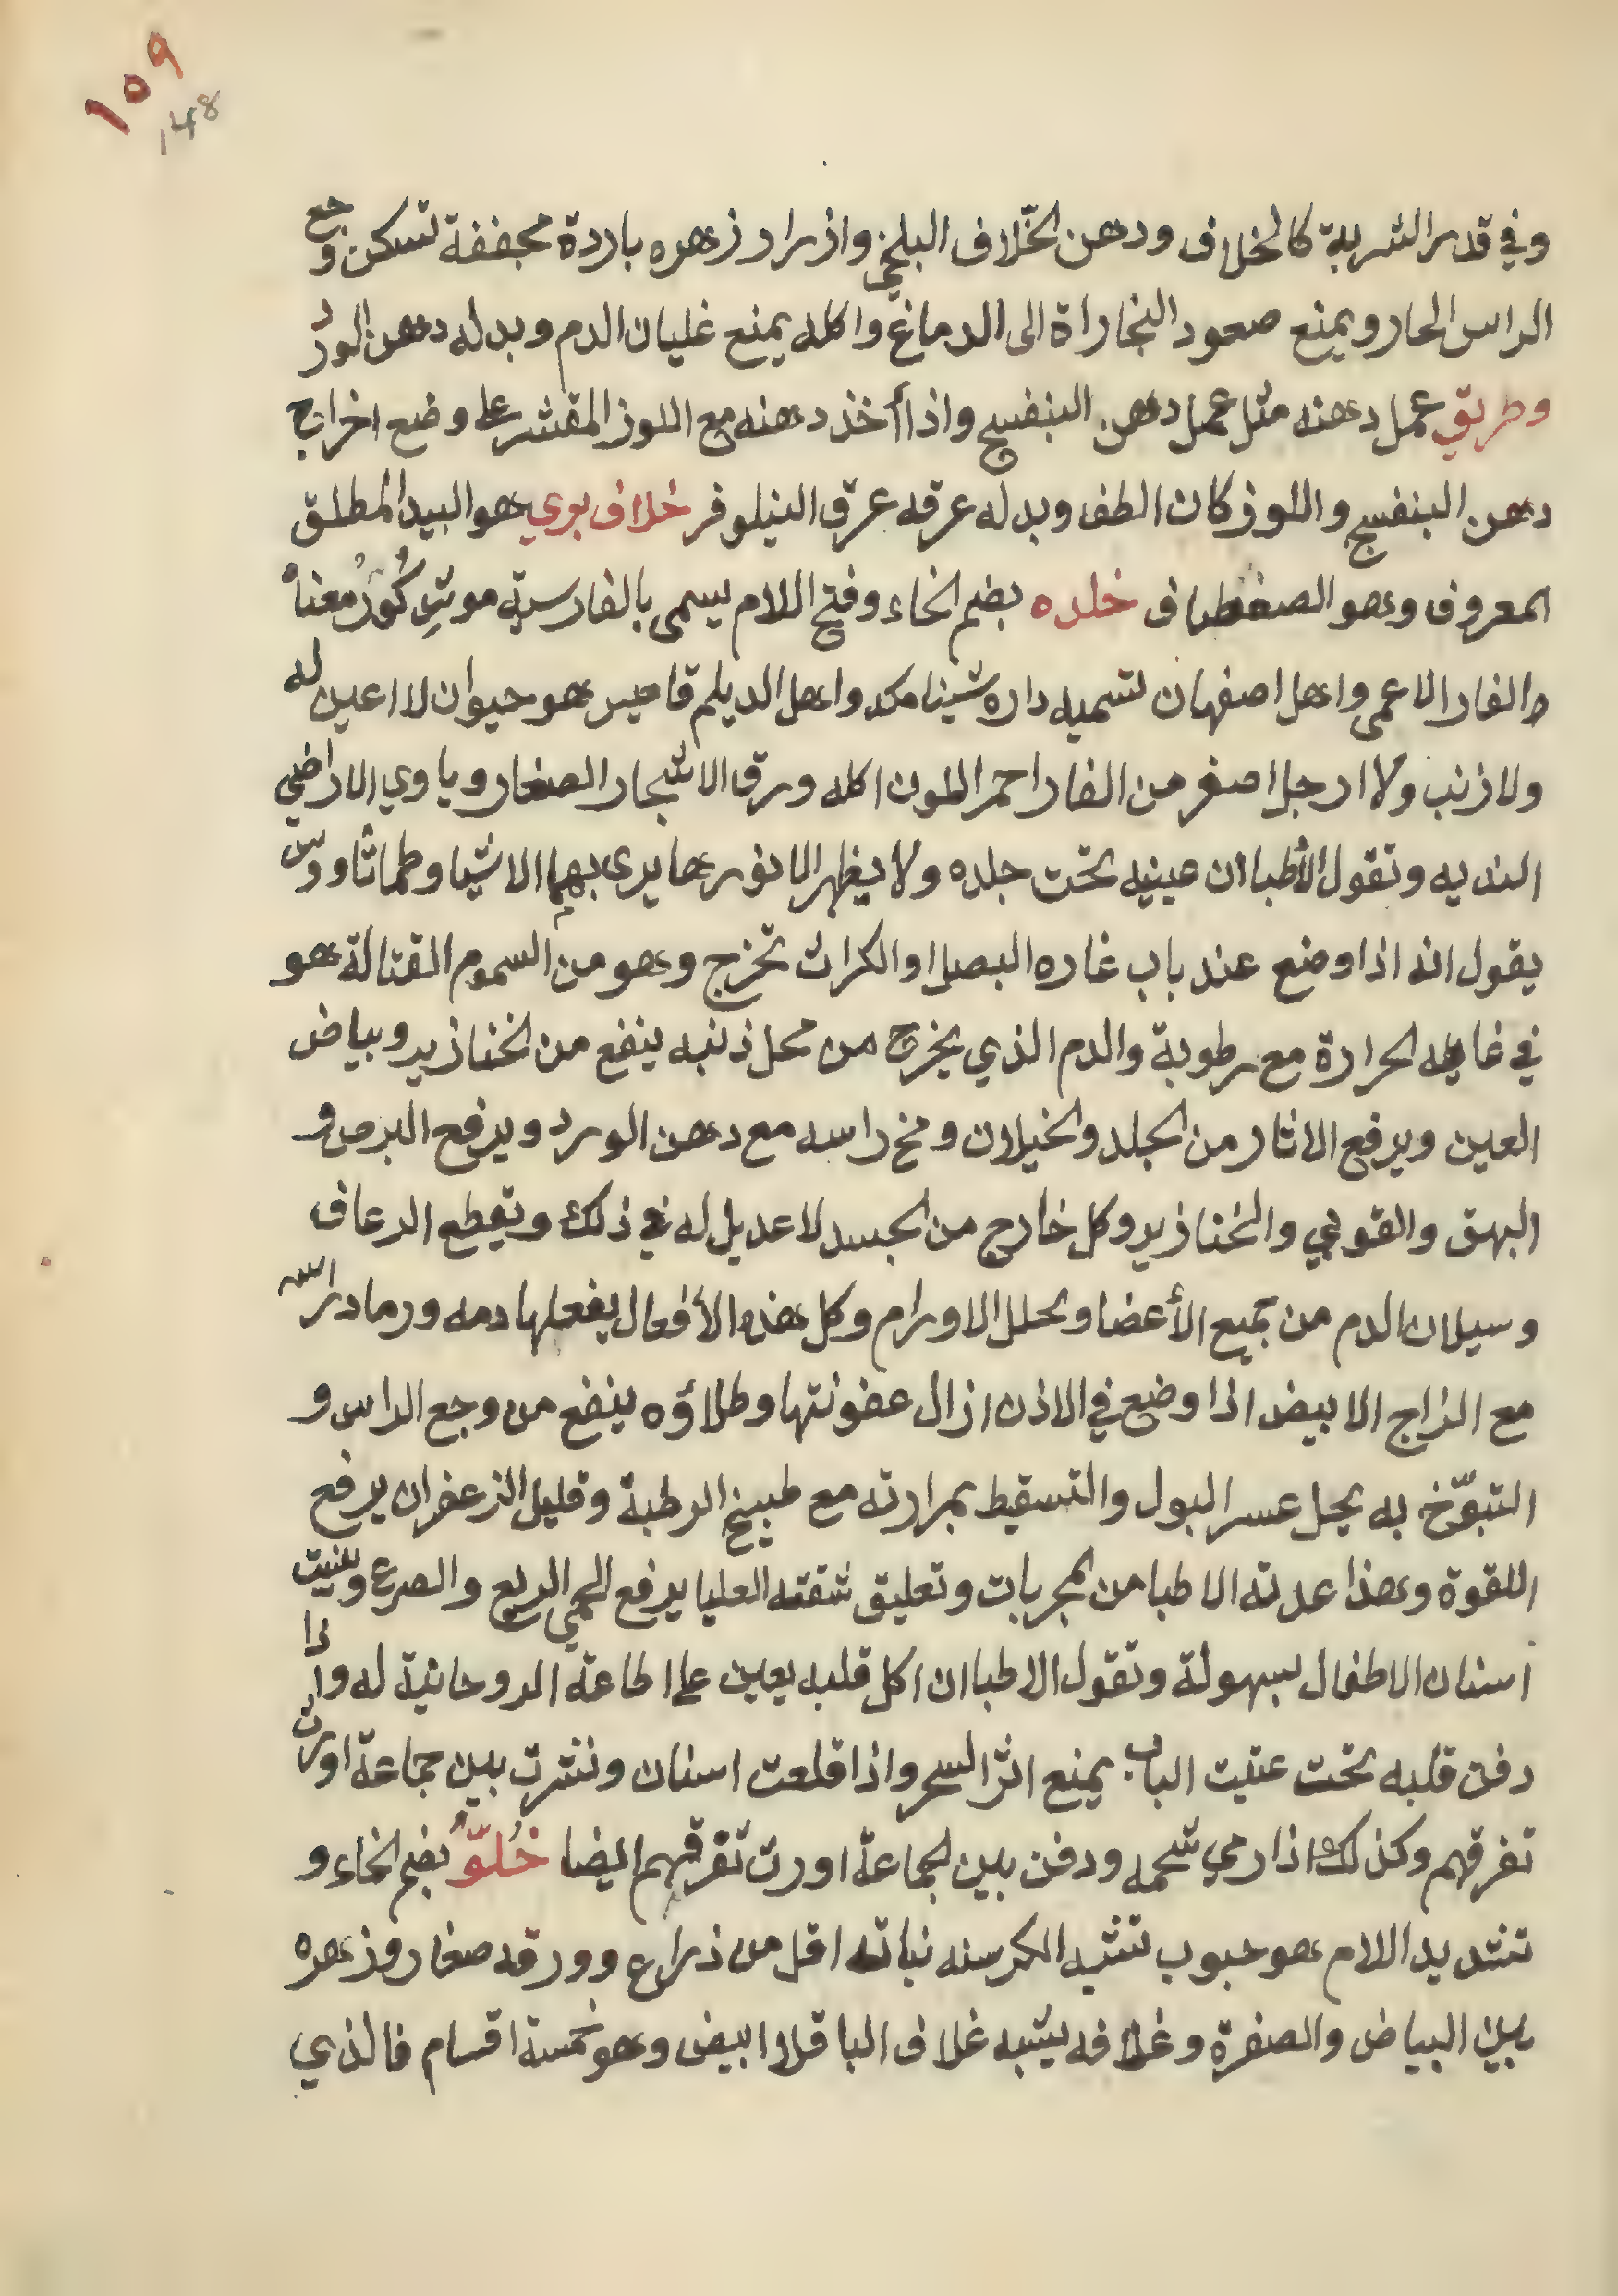 ١٥٩
148
وفي قدر الشربة كالخلاف ودهن الخّلاف البلخي وازرار زهره باردة مجففة تسكن وجع
الراس الحار ويمنع صعود البخاراة الى الدماغ واكله يمنع غليان الدم وبدله دهن الورد
وطريق عمل دهنه مثل عمل دهن البنفسج واذا أخذ دهنه مع اللوز المقشر على وضع اخراج
دهن البنفسج واللوز كان الطف وبدله عرقه عرق النيلوفر خلاف بري هو البيد المطلق
المعروف وهو الصفصاف خلده بضم الخاء وفتح اللام يسمى بالفارسية موشِ كُورْ معناه
والفار الاعمى واهل اصفهان تسميه داره واهل الديلم هو حيوان لا اعين له
ولا زنب ولا ارجل اصغر من الفار احمر اللون اكله ورق الاشجار الصغار وياوي الاراضي
النديه وتقول الأطبا ان عينيه تحت جلده ولا يظهر الا نورها يرى بهما الاشيا
يقول انه اذا وضع عند باب غاره البصل او الكراث تخرج وهو من السموم القتالة هو
في غايه الحرارة مع رطوبة والدم الذي يخرج من محل ذنبه ينفع من الخنازير وبياض
العين ويرفع الاثار من الجلد والخيلان ومخ راسه مع دهن الورد ويرفع البرص و
البهق والقوبي والخنازير وكل خارج من الجسد لا عديل له في ذلك وتقطع الرعاف
وسيلان الدم من جميع الأعضا وتحلل الاورام وكل هذه الأفعال يفعلها دمه ورماد راسه
مع الزاج الابيض اذا وضع في الاذن ازال عفونتها وطلاؤه ينفع من وجع الراس و
التبوّخ به يحل عسر البول والتسقيط بمرارته مع طبيخ الرطبة وقليل الزعفران يرفع
اللقوة وهذا عدته الاطبا من المجربات وتعليق شفته العليا يرفع الحمي الربع والصرع وتنبت
اسنان الاطفال بسهولة وتقول الاطبا ان اكل قلبه يعين على اطاعة الروحانية له واذا
دفن قلبه تحت عتبت الباب يمنع اثر السحر واذا قلعت اسنان ونثرت بين جماعة اورث
تفرقهم وكذلك اذا رمي شحمه ودفن بين الجماعة اورث تفرقهم ايضا خُلّرٌ بضم الخاء و
تشديد اللام هو حبوب تشبه الكرسنه نباته اقل من ذراع وورقه صغار وزهره
بين البياض والصفرة وغلافه يشبه غلاف الباقلا ابيض وهو خمسة اقسام فالذي